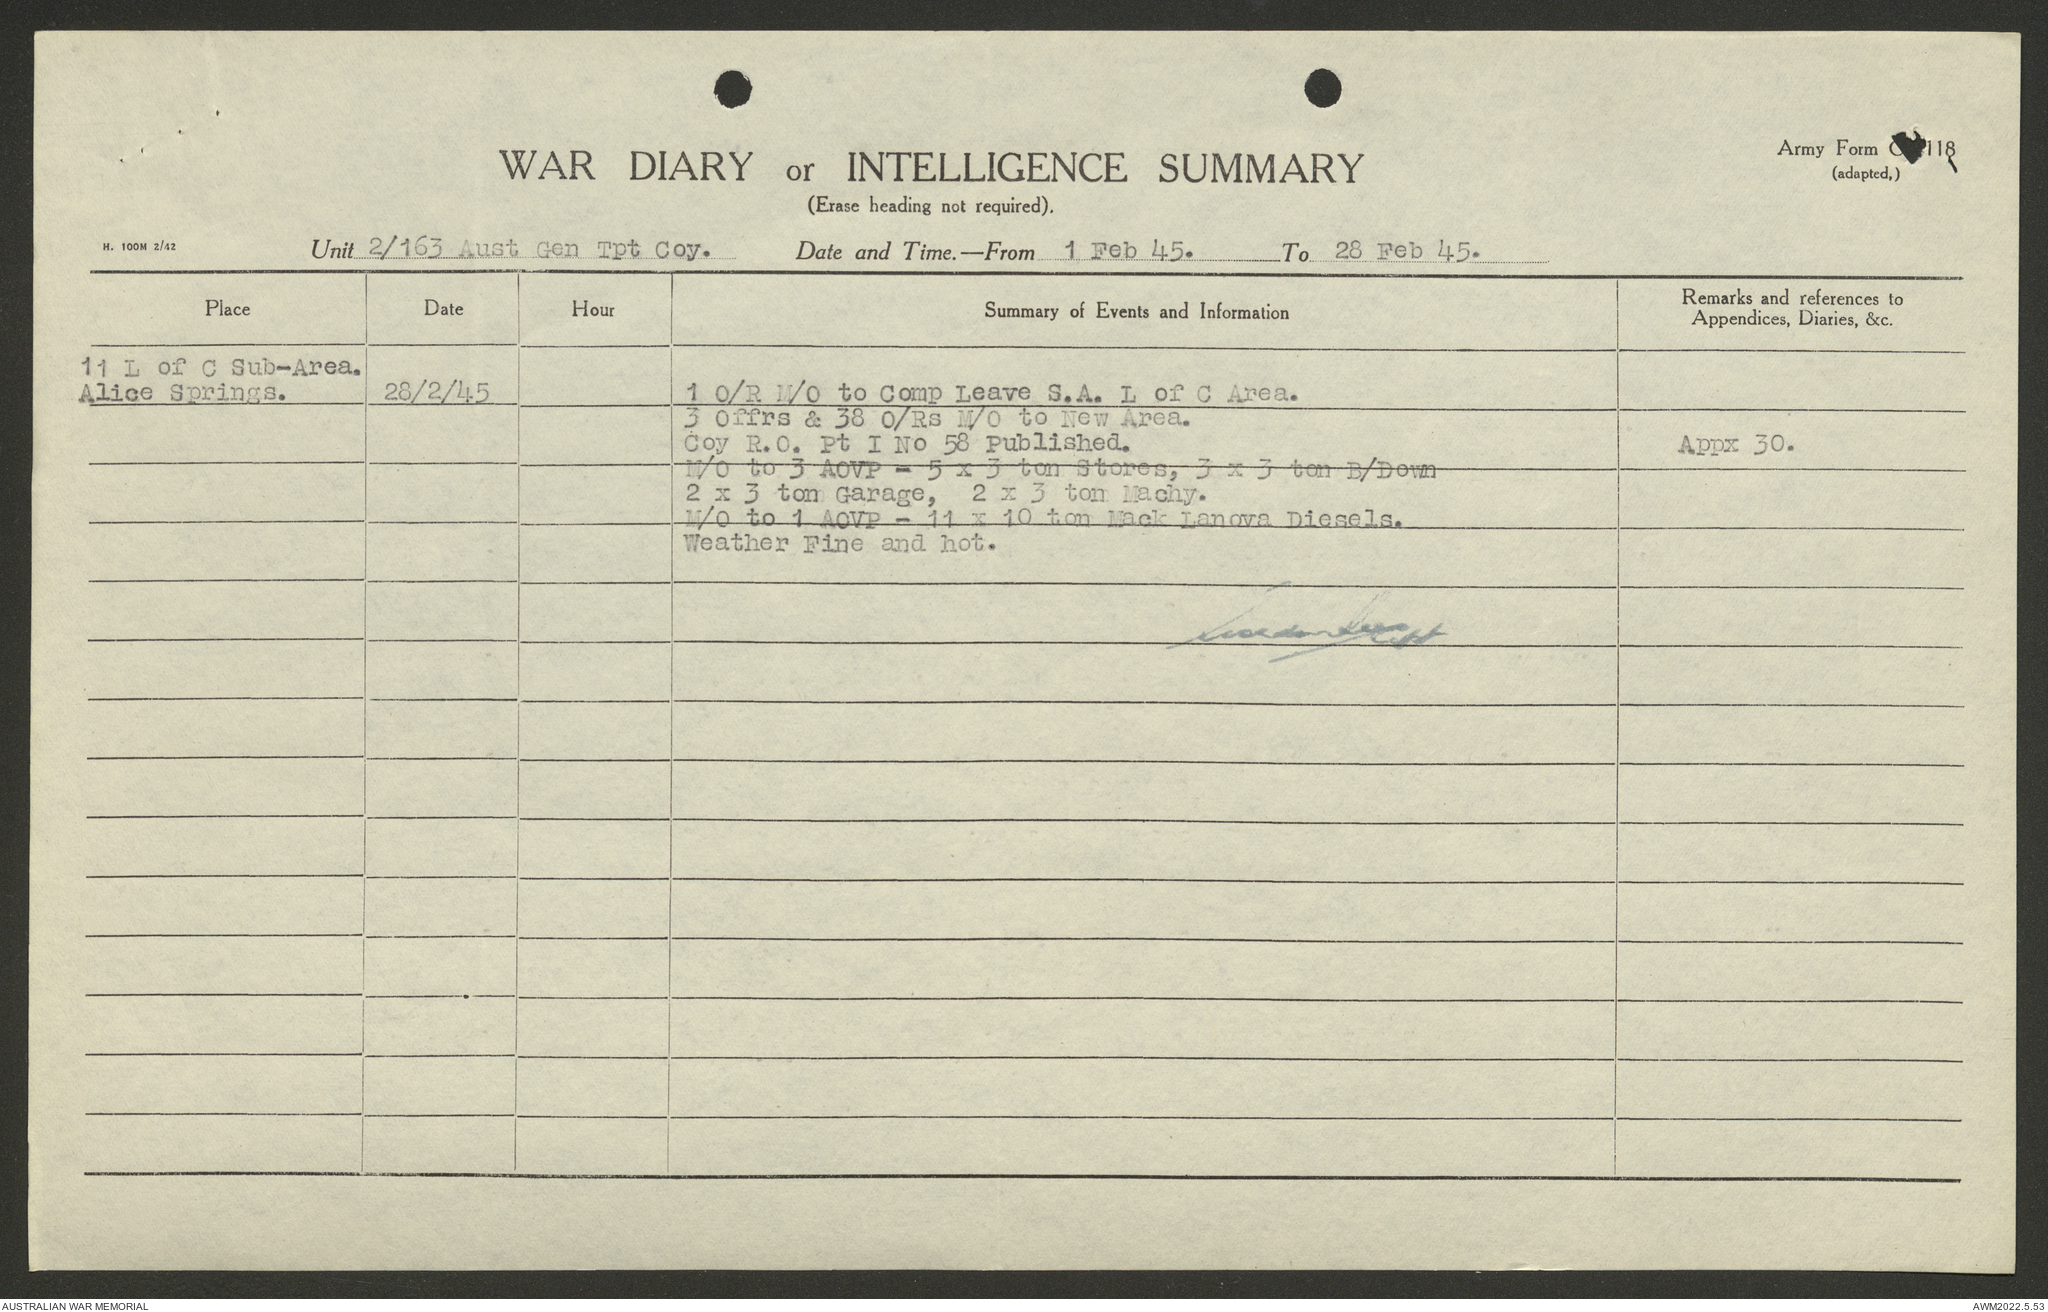 WAR DIARY or INTELLIGENCE SUMMARY
Army Form 118
(adapted,)
(Erase heading not required).
H. 100M 2/42
Unit 2/163 Aust Gen Tpt Coy. Date and Time.—From 1 Feb 45. To 28 Feb 45.
Place Date Hour Summary of Events and Information Remarks and references to
Appendices, Diaries, &c.
11 L of C Sub-Area.
Alice Springs. 28/2/45 1 O/R M/O to Comp Leave S.A. L of C Area.
3 Offrs & 38 O/Rs M/O to New Area.
Coy R.O. Pt I No 58 Published. Appx 30.
M/O to 3 AOVP - 5 x 3 ton Stores, 3 x 3 ton B/Down
2 x 3 ton Garage, 2 x 3 ton Machy.
M/O to 1 AOVP - 11 x 10 ton Mack Lanova Diesels.
Weather Fine and hot.
AUSTRALIAN WAR MEMORIAL
AWM2022.5.53